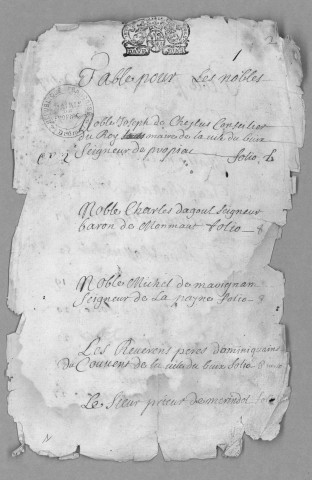 1
Table pour Les nobles
Noble Joseph de Cheylus Conseiller
du Roy maire de la ville du buix
Seigneur de propiac folio 1
Noble Charles dagoul Seigneur
baron de Monmaur folio 8
Noble Michel de mavignan
Seigneur de La payne folio 8
Les Reverens peres dominiquains
du Couvens de la ville du buix folio
Le Sieur prieur de merindol